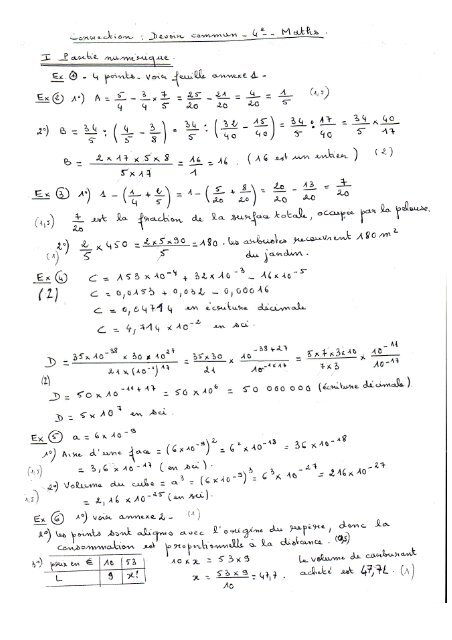 Correction : Devoir commun - 4e - Maths.
I Partie numérique.
Ex. 1 - 4 points. voir feuille annexe 1 -
Ex 2 1°) A = 5/4 - 3/4 × 7/5 = 25/20 - 21/20 = 4/20 = 1/5 (1,5)
2°) B = 34/5 : (4/5 - 3/8) = 34/5 : (32/40 - 15/40) = 34/5 : 17/40 = 34/5 × 40/17
B = 2×17×5×8 / 5×17 = 16/1 = 16. (16 est un entier) (2)
Ex 3 1°) 1 - (1/4 + 2/5) = 1 - (5/20 + 8/20) = 20/20 - 13/20 = 7/20
(1,5) 7/20 est la fraction de la surface totale, occupée par la pelouse.
2°) 2/5 × 450 = 2×5×90/5 = 180. Les arbustes recouvrent 180 m²
(1) du jardin.
Ex 4 C = 153×10⁻⁴ + 32×10⁻³ - 16×10⁻⁵
(2) C = 0,0153 + 0,032 - 0,00016
C = 0,04714 en écriture décimale
C = 4,714×10⁻² en sci.
D = 35×10⁻³⁸ × 30×10²⁷ / 21×(10⁻¹)¹⁷ = 35×30/21 × 10⁻³⁸⁺²⁷/10⁻¹ˣ¹⁷ = 5×7×3×10/7×3 × 10⁻¹¹/10⁻¹⁷
(2)
D = 50×10⁻¹¹⁺¹⁷ = 50×10⁶ = 50 000 000 (écriture décimale)
D = 5×10⁷ en sci.
Ex 5 a = 6×10⁻⁹
1°) Aire d'une face = (6×10⁻⁹)² = 6²×10⁻¹⁸ = 36×10⁻¹⁸
= 3,6×10⁻¹⁷ (en sci).
2°) Volume du cube = a³ = (6×10⁻⁹)³ = 6³×10⁻²⁷ = 216×10⁻²⁷
1,5) = 2,16×10⁻²⁵ (en sci).
Ex 6 1°) voir annexe 2 - (1)
2°) Les points sont alignés avec l'origine du repère, donc la
consommation est proportionnelle à la distance.
3°) prix en € | 10 | 53 10×x = 53×9 le volume de carburant
L | 9 | x! x = 53×9/10 = 47,7. acheté est 47,7L. (1)